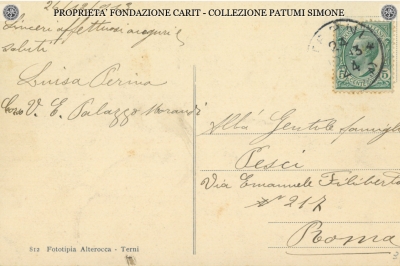 PROPRIETA' FONDAZIONE CARIT - COLLEZIONE PATUMI SIMONE
Sinceri affettuosi auguri e
saluti
Luisa Perina
Corso V. E. Palazzo Morandi
Alla Gentile famiglia
Pesci
Via Emanuele Filiberto
N° 217
Roma
812 Fototipia Alterocca - Terni